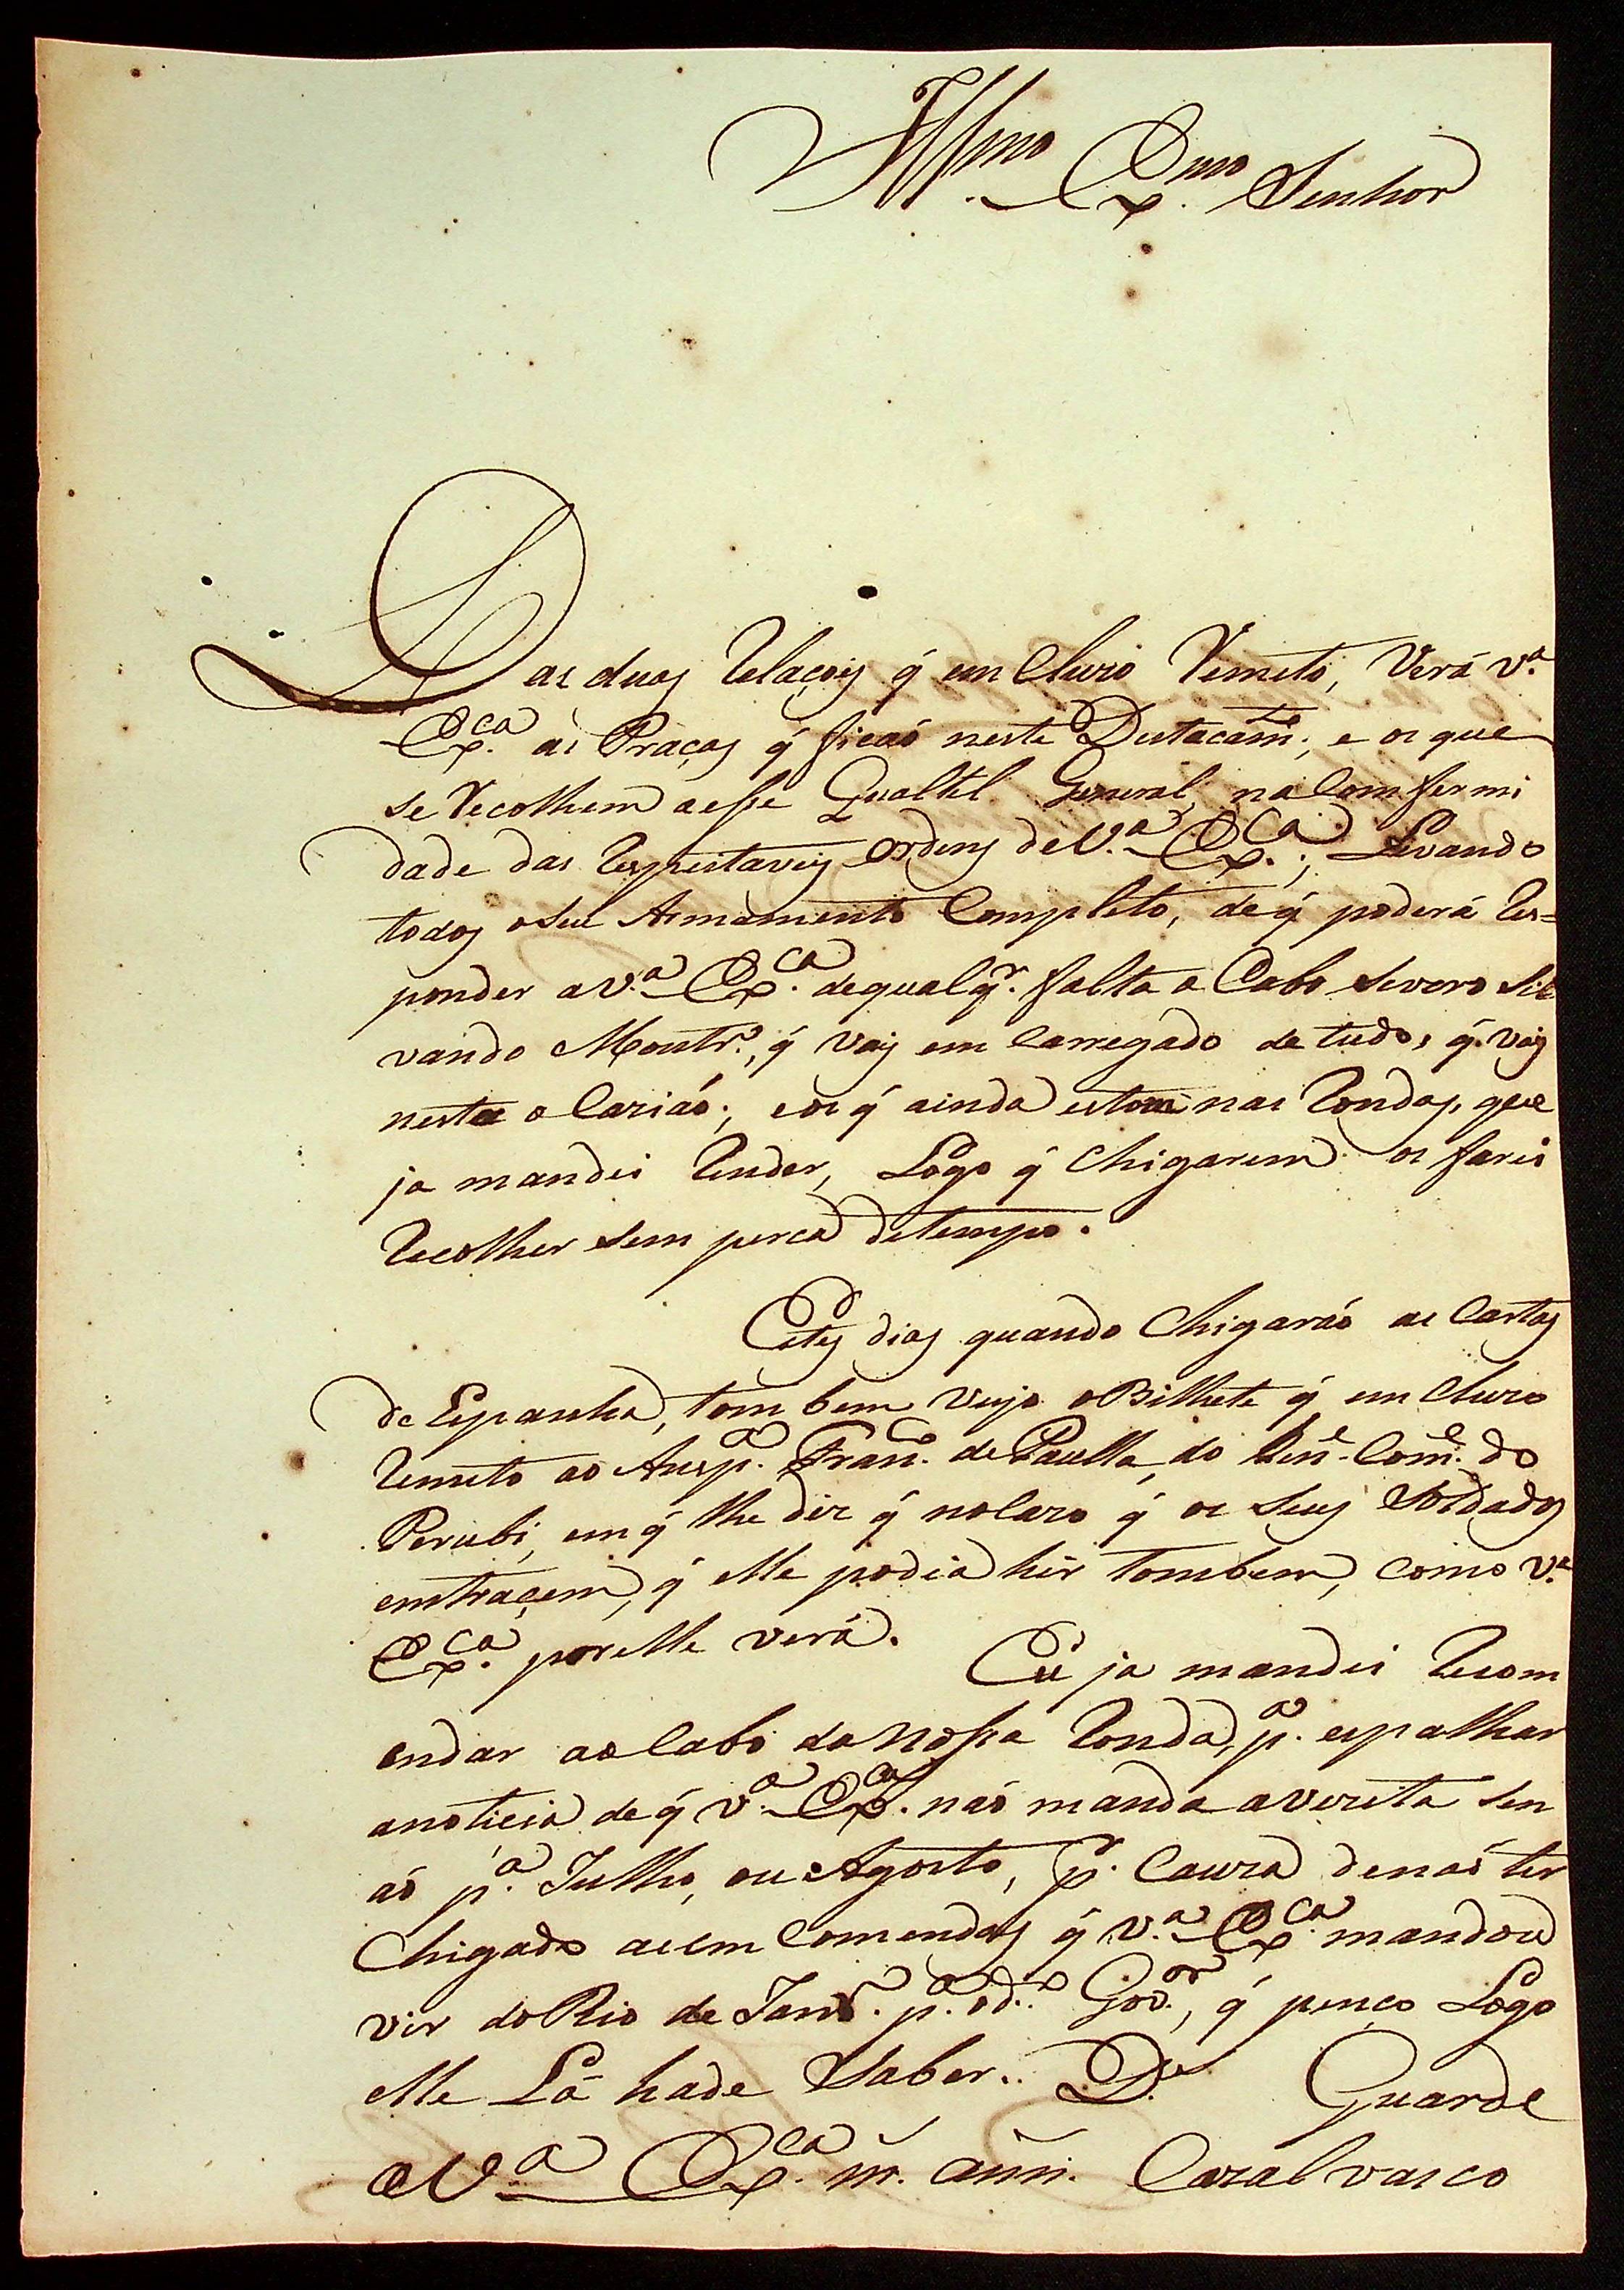 Illmo. Exmo. Senhor
Das duas Relaçois q̃ em Cluzo Remeto, Verá V.ª
Ex.ca as Praças q̃ ficaõ neste Destacamt̃o., e os que
se Recolhem a esse Qualtel General, na Comfermi
dade das Respeitaveis Ordens de V.ª Ex.ca; Levando
todos o seu Armamento Completo, de q̃ poderá Res=
ponder a V.ª Ex.ca de qualq̃r. falta o Cabo Severo Sil
vando Montr.º, q̃ Vay em Carregado de tudo, q̃ Vay
nesta o Caziaõ; e os q̃ ainda estom nas Rondas, que
ja mandei Render, Logo q̃ Chigarem os farei
Recolher sem perca de tempo.
Estes dias quando Chigaráo as Cartas
de Espanha, tom bem veyo o Bilhete q̃ em Cluzo
Remeto ao Ansp.ª Fran.co de Paulla, do Ten.e Com.e do
Perubi, em q̃ lhe diz q̃ no Cazo q̃ os seus Soldados
emtraçem, q̃ elle podia hir tombem, como V.ª
Ex.ca por elle verá. Eu ja mandei Recom
endar ao Cabo da Nossa Ronda, p.ª espalhar
a noticia de q̃ V.ª Ex.ca naõ manda a Vezita sen
aõ p.ª Julho, ou Agosto, p.r Cauza de naõ ter
Chigado as em Comendas q̃ V.ª Ex.ca mandou
vir do Rio de Janr.º p.ª o d.º Gov.or, q̃ penço Logo
elle Lá hade Saber. D.s Guarde
a V.ª Ex.ca m̃. ann̄. Cazal vasco